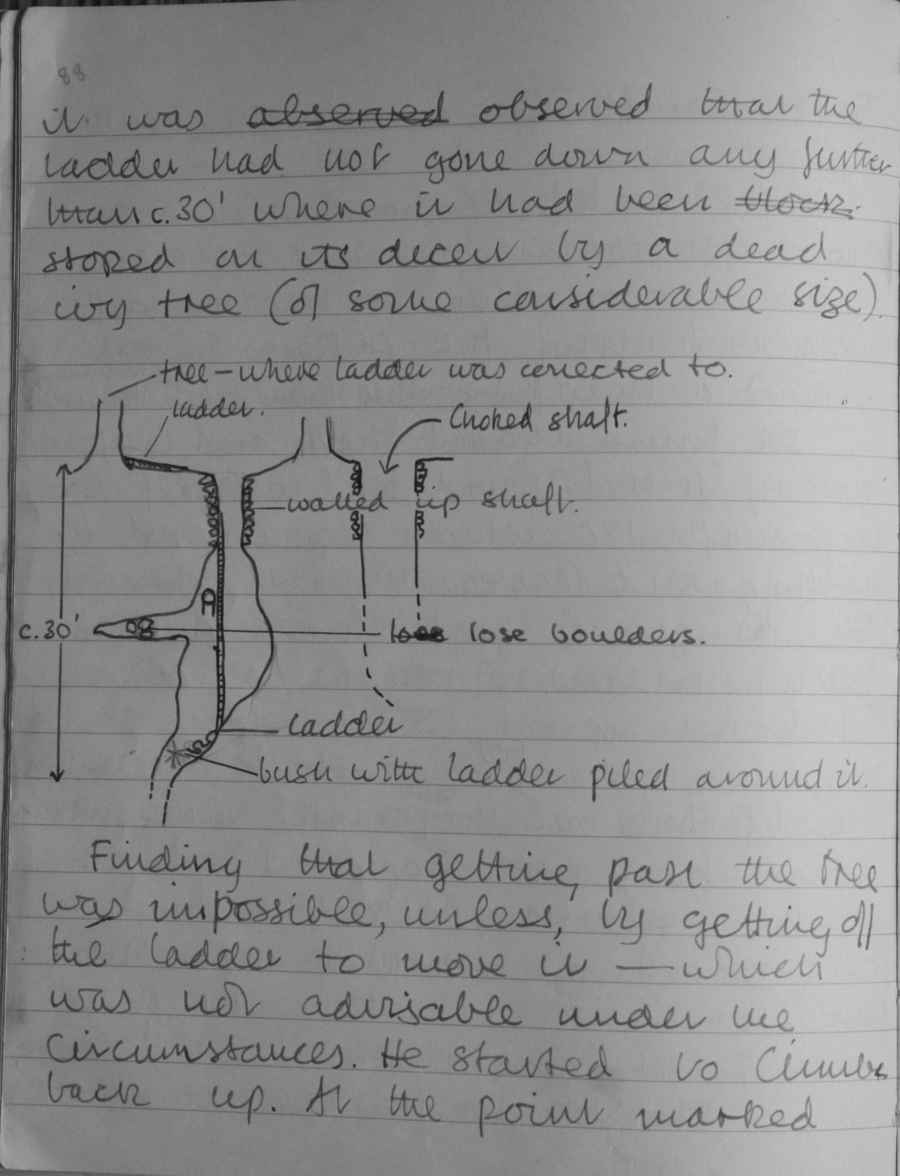 88
it was observed observed that the
ladder had not gone down any further
than c.30' where it had been block
stoped on its decent by a dead
ivy tree (of some considerable size).
tree – where ladder was conected to.
ladder.
Choked shaft.
walled up shaft.
A
c.30'
loes lose boulders.
ladder
bush with ladder piled around it.
Finding that getting past the tree
was impossible, unless, by getting off
the ladder to move it — which
was not advisable under the
circumstances. He started to climb
back up. At the point marked